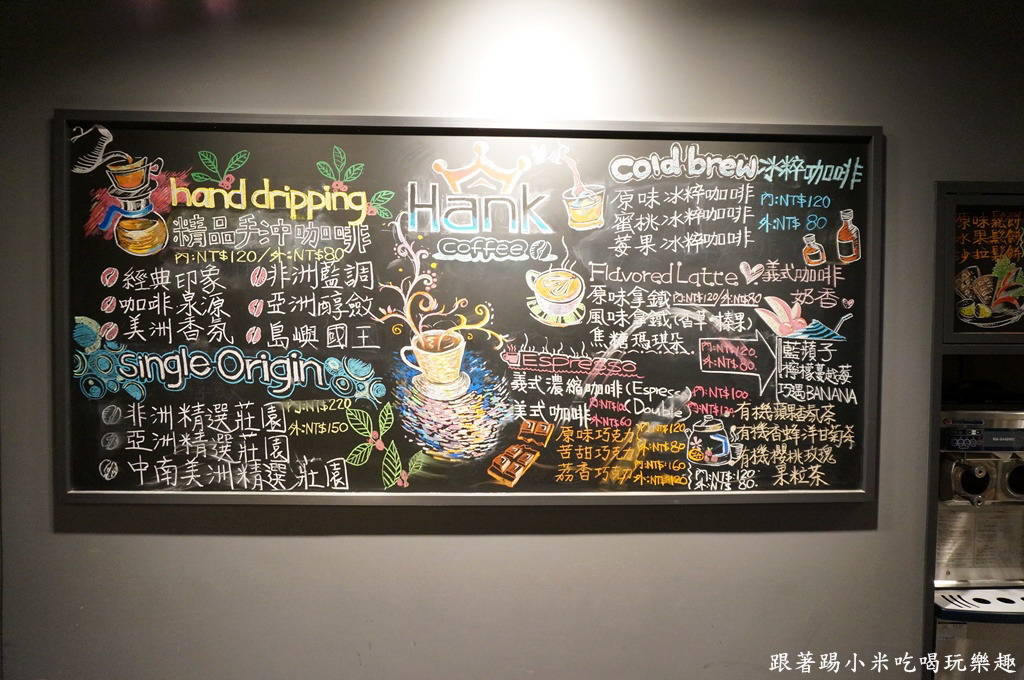 hand dripping
精品手沖咖啡
內:NT$120/外:NT$80
經典印象
非洲藍調
咖啡泉源
亞洲醇斂
美洲香氛
島嶼國王
Single Origin
非洲精選莊園
亞洲精選莊園
中南美洲精選莊園
內:NT$220
外:NT$150
Hank
coffee
cold brew 冰粹咖啡
原味冰粹咖啡
蜜桃冰粹咖啡
蔓果冰粹咖啡
內:NT$120
外:NT$80
Flavored Latte 義式咖啡
奶香
原味拿鐵 內:NT$120/外:NT$80
風味拿鐵(香草・榛果)
焦糖瑪琪朵
內:NT$120
外:NT$80
藍蘋子
檸檬蔓越莓
巧遇BANANA
Espresso
義式濃縮咖啡(Espec
Double) 內:NT$100
美式咖啡
外:NT$60
原味巧克力 內:NT$120
苦甜巧克力 外:NT$80
荔香巧克力 內:NT$160
外:NT$120
有機蘋香氛茶
有機香蜂洋甘菊茶
有機櫻桃玫瑰
果粒茶
內:NT$120
外:NT$80
原味鬆餅
水果鬆餅
沙拉鬆餅
跟著踢小米吃喝玩樂趣